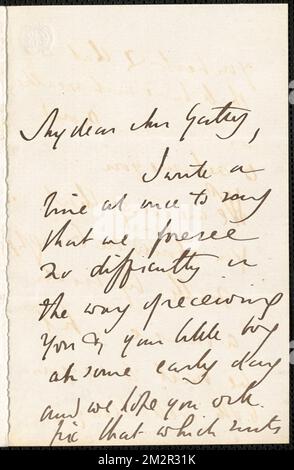 My dear Mrs Gatty,
I write a
line at once to say
that we foresee
no difficulty in
the way of receiving
you & your little boy
at some early day
and we hope you will
fix that which suits
alamy
Image ID: 2M2R31K
www.alamy.com